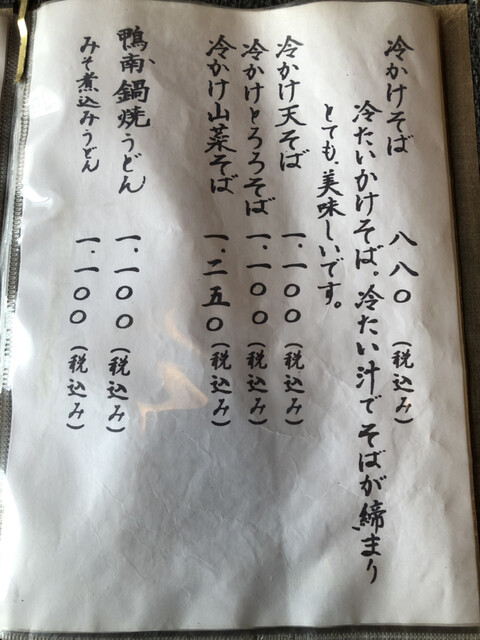 冷かけそば 八八〇(税込み)
冷たいかけそば。冷たい汁でそばが締まり
とても、美味しいです。
冷かけ天そば 一.一〇〇(税込み)
冷かけとろろそば 一.一〇〇(税込み)
冷かけ山菜そば 一.二五〇(税込み)
鴨南鍋焼うどん 一.一〇〇(税込み)
みそ煮込みうどん 一.一〇〇(税込み)